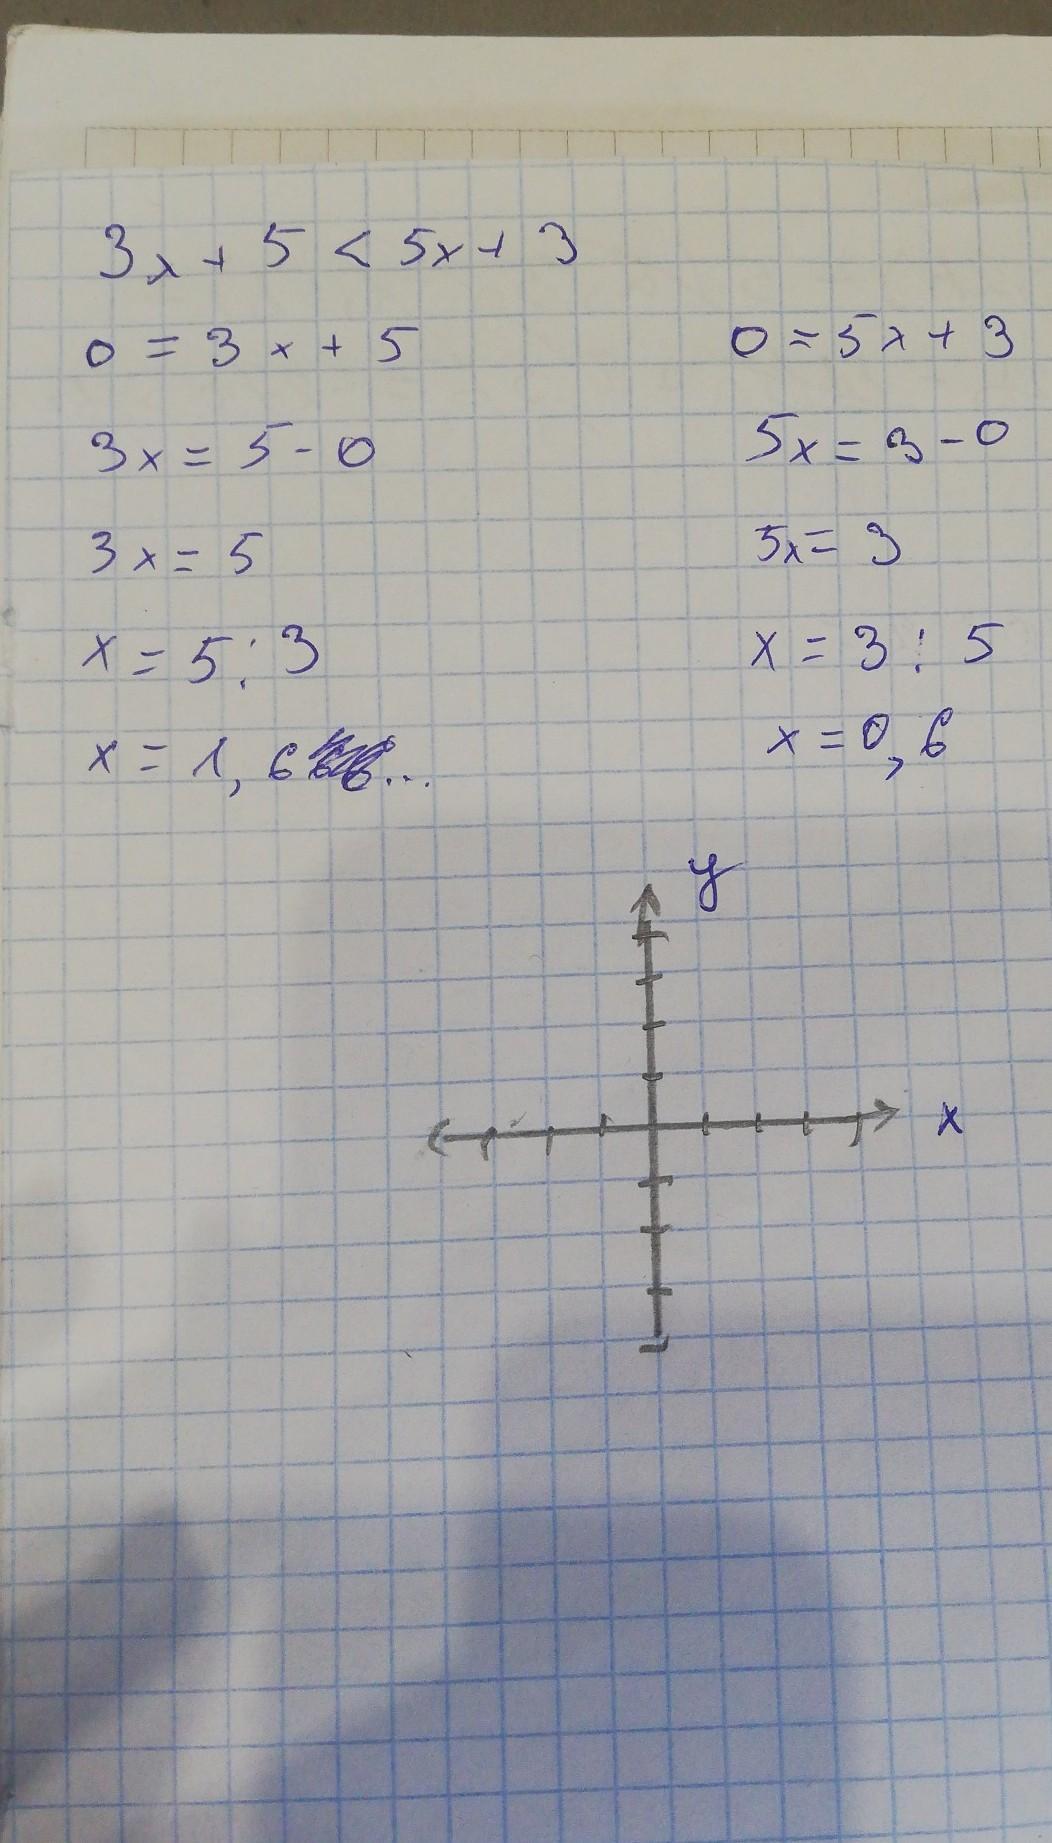 3x + 5 < 5x + 3
0 = 3x + 5
3x = 5 - 0
3x = 5
x = 5 : 3
x = 1,6...
0 = 5x + 3
5x = 3 - 0
5x = 3
x = 3 : 5
x = 0,6
y
x